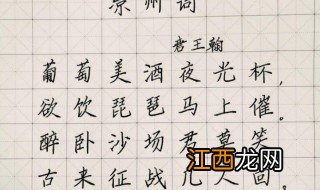 凉州词
唐 王翰
葡萄美酒夜光杯,
欲饮琵琶马上催。
醉卧沙场君莫笑
古来征战几人回。
江西龙网